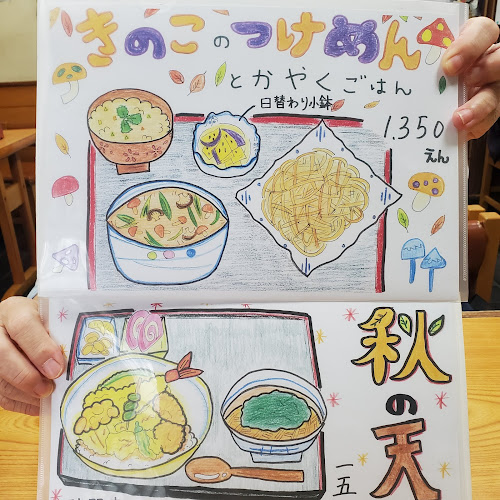 きのこのつけめん
とかやくごはん
日替わり小鉢
1.350
えん
秋の天
一五